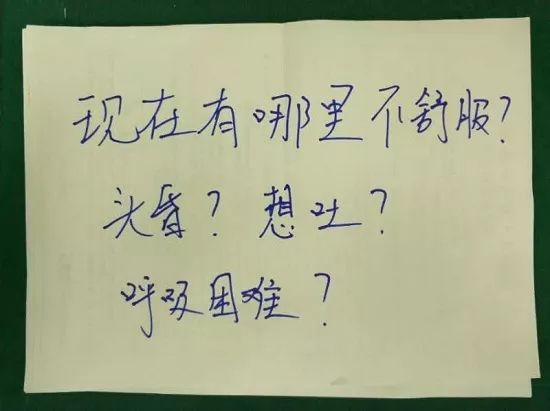 现在有哪里不舒服?
头昏? 想吐?
呼吸困难?